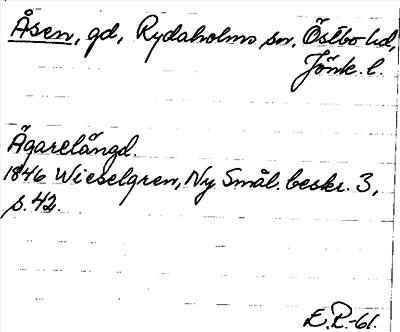 Åsen, gd, Rydaholms sn, Östbo hd,
Jönk. l.
Ägarelängd.
1846 Wieselgren, Ny Smål. beskr. 3,
s. 42.
E.P.-61.